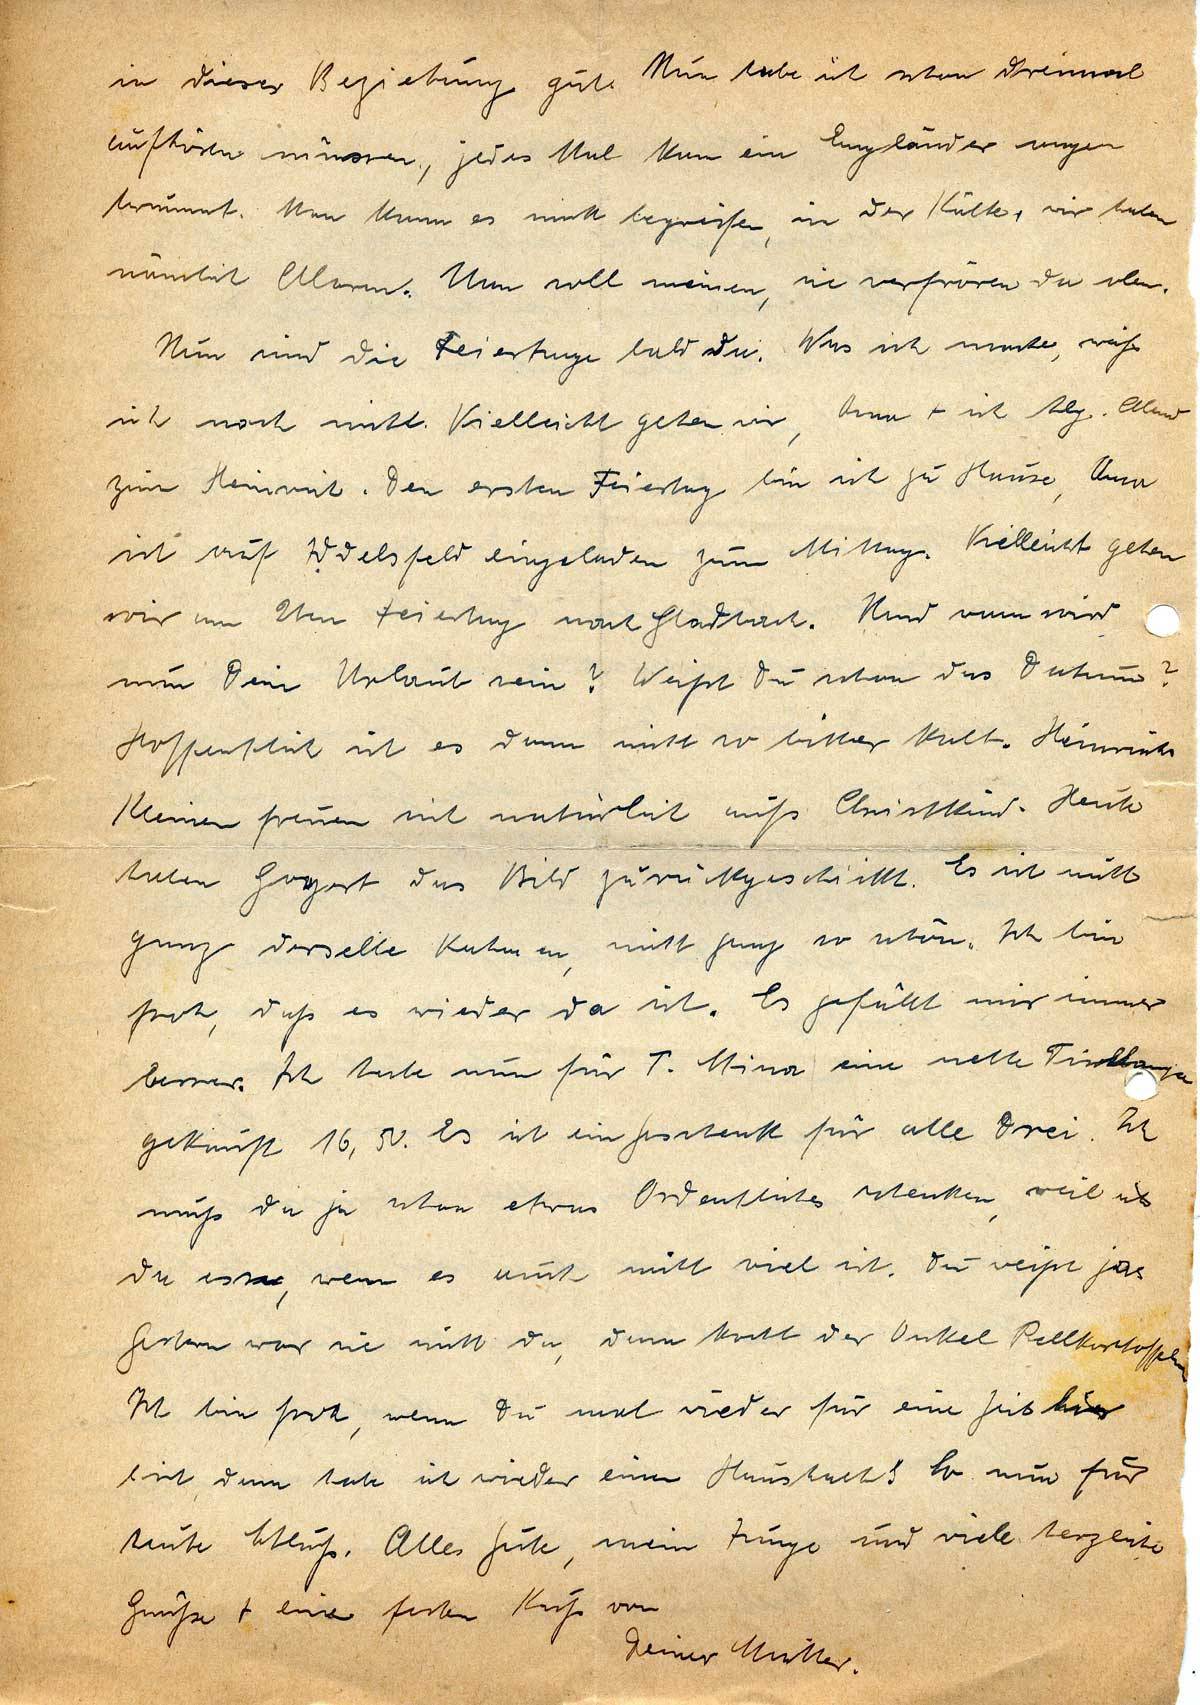 in dieser Beziehung gut. Nun habe ich schon dreimal
aufhören müssen, jedes Mal kam ein Engländer angen
brummt. Man kann es nicht begreifen, in der Kälte, wir haben
nämlich Alarm. Man soll meinen, sie verfrören da oben.
Nun sind die Feiertage bald da. Was ich mache, weiß
ich noch nicht. Vielleicht gehen wir, Oma + ich Hlg. Abend
zum Heinrich. Den ersten Feiertag bin ich zu Hause, Oma
ist auf Edelsfeld eingeladen zum Mittag. Vielleicht gehen
wir am 2ten Feiertag nach Gladbach. Und wann wird
nun Dein Urlaub sein? Weißt Du schon das Datum?
Hoffentlich ist es dann nicht so bitter kalt. Heinrichs
Kleinen freuen sich natürlich aufs Christkind. Heute
haben das Bild zurückgeschickt. Es ist nicht
ganz derselbe Rahmen, nicht ganz so schön. Ich bin
froh, daß es wieder da ist. Es gefällt mir immer
besser. Ich habe nun für T. Mina eine nette
gekauft 16,50. Es ist ein Geschenk für alle Drei. Ich
muß da ja schon etwas Ordentliches schenken, weil ich
da esse, wenn es auch nicht viel ist. Du weißt ja
Gestern war sie nicht da, dann kocht der Onkel Pellkartoffeln
Ich bin froh, wenn Du mal wieder für eine Zeit hier
bist, dann habe ich wieder einen Haushalt! So nun für
heute Schluß. Alles Gute, mein Junge und viele herzliche
Grüße + eine festen Kuß von
Deiner Mutter.